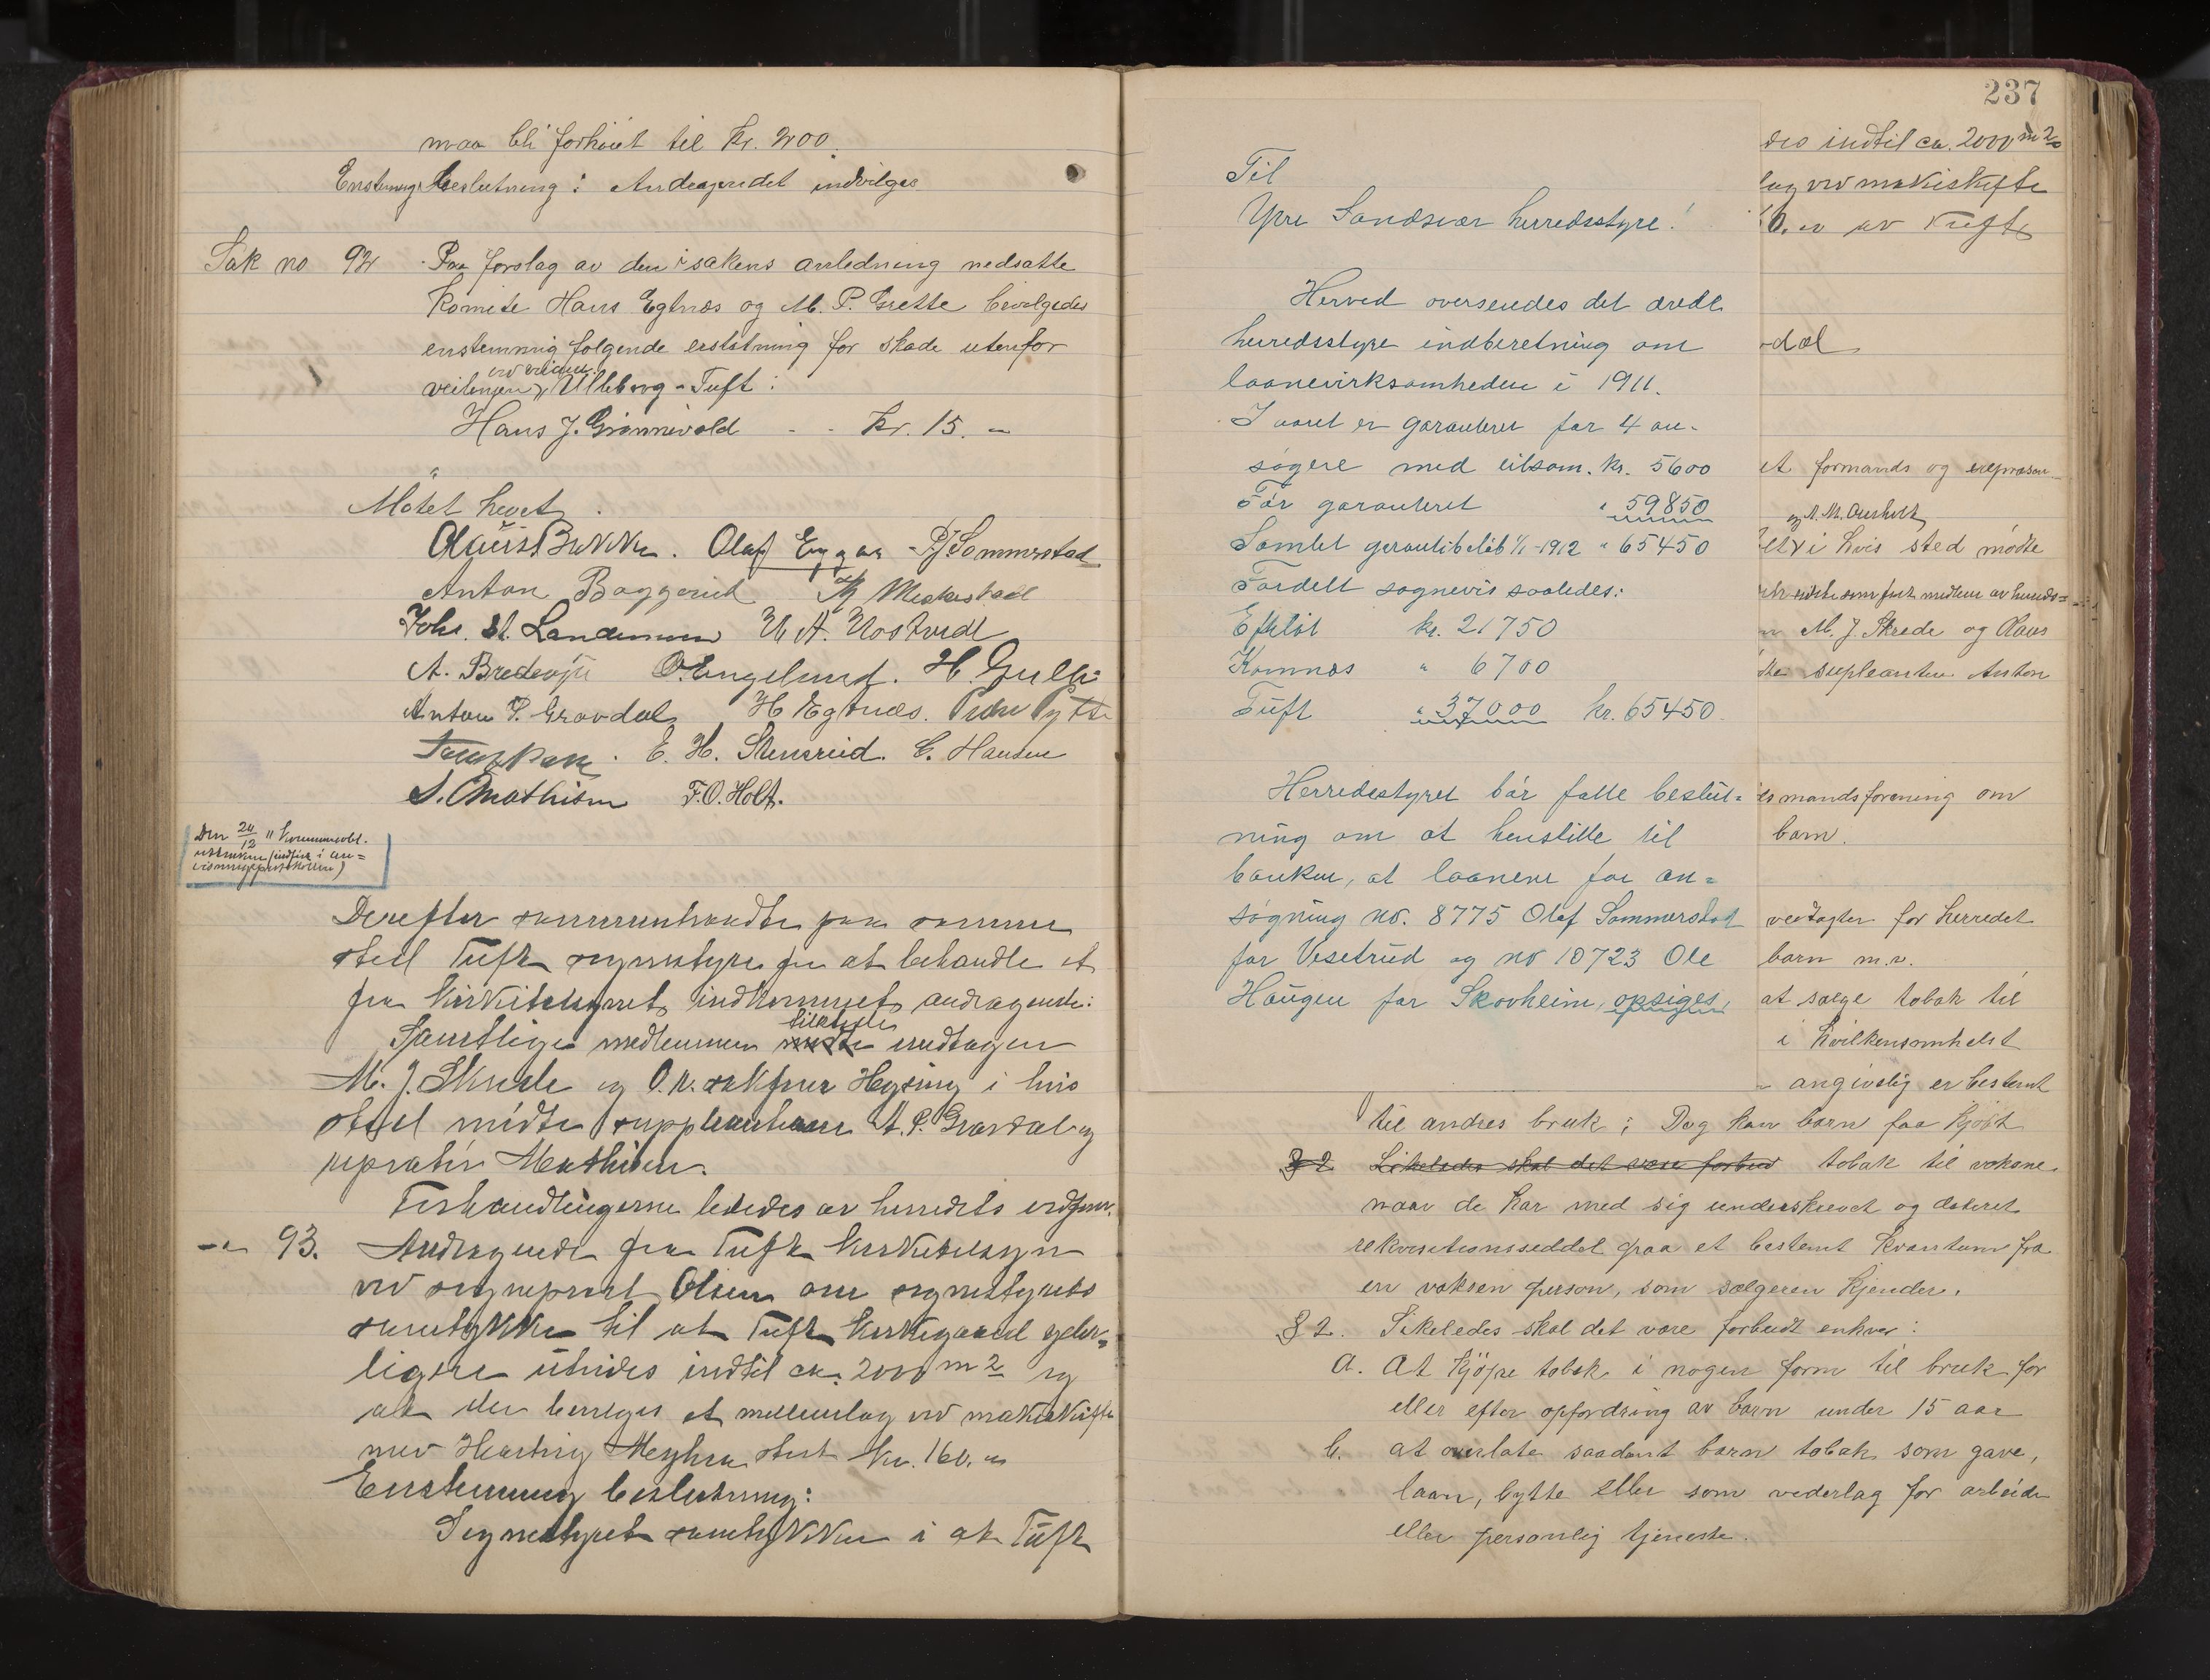 maa bli forhöiet til Kr. 200.
Enstemmig beslutning: Andragendet indvilges
Sak no 92 Paa forslag av den i sakens anledning nedsatte
komite Hans Egtnæs og M. P. Grette bevilgedes
enstemmig følgende erstatning for skade utenfor
veilinjen ved veianl. Ulleborg - Tuft:
Hans J. Grönnevold - - Kr. 15. -
Mötet hevet.
Olaf P. J. Sommerstad
Anton Baggerud
A. O. Engelund. H. Gulli
Anton P. Gravdal H Egtnæs. Peder
E. H. Stensrud. C. Hansen
S. Mathisen F. O. Holt.
Den 24/12 11
Derefter sammentraadte paa samme
sted Tuft sognestyre for at behandle et
fra kirketilsynet indkommet andragende:
Samtlige medlemmer tilstede undtagen
M. J. Skrede og O.r. sakfører Heysing i hvis
sted mödte suppleanterne A. P. Gravdal og
Mathisen.
Forhandlingerne lededes av herredets ordförer.
-"- 93. Andragende fra Tuft kirketilsyn
ved sogneprest Olsen om sognestyrets
samtykke til at Tuft kirkegaard yder-
ligere utvides indtil ca. 2000 m2 og
at der bevilges et mellemlag ved makeskifte
med Meyhra stort kr. 160. -
Enstemmig beslutning:
Sognestyret samtykker i at Tuft
237
Til
Ytre Sandsvær herredsstyre!
Herved oversendes det ærede
herredsstyre indberetning om
laanevirksomheden i 1911.
I aaret er garanteret for 4 an-
søgere med tilsam. kr. 5600
Før garanteret " 59850
Samlet garantibeløb 1/1-1912 " 65450
Fordelt sognevis saaledes:
Efteløt kr. 21750
Komnæs " 6700
Tuft " 37000 kr. 65450.
Herredsstyret bør fatte beslut-
ning om at henstille til
banken, at laanene for an-
søgning no. 8775 Olaf Sommerstad
for Vesetrud og no 10723 Ole
Haugen for Skovheim, opsiges,
des indtil ca. 2000 m2
lag ved makeskifte
0. - av Tuft
dal
et formands og
og A. M.
i hvis sted mödte
M. J. Skrede og Claus
suppleanten Anton
mandsforening om
barn.
vedtagter for herredet
barn m.v.
at sælge tobak til
i hvilkensomhelst
angivelig er bestemt
til andres bruk; Dog kan barn faa kjöbt
§ 2 Likeledes skal det være forbud tobak til voksne
naar de har med sig underskrevet og dateret
rekvisitionsseddel paa et bestemt kvantum fra
en voksen person, som sælgeren kjender.
§ 2. Likeledes skal det være forbudt enhver:
a. At kjöpe tobak i nogen form til bruk for
eller efter opfordring av barn under 15 aar
b. at overlate saadant barn tobak som gave,
laan, bytte eller som vederlag for arbeide
eller personlig tjeneste.